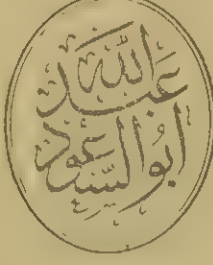 عبد الله
أبو السّعود